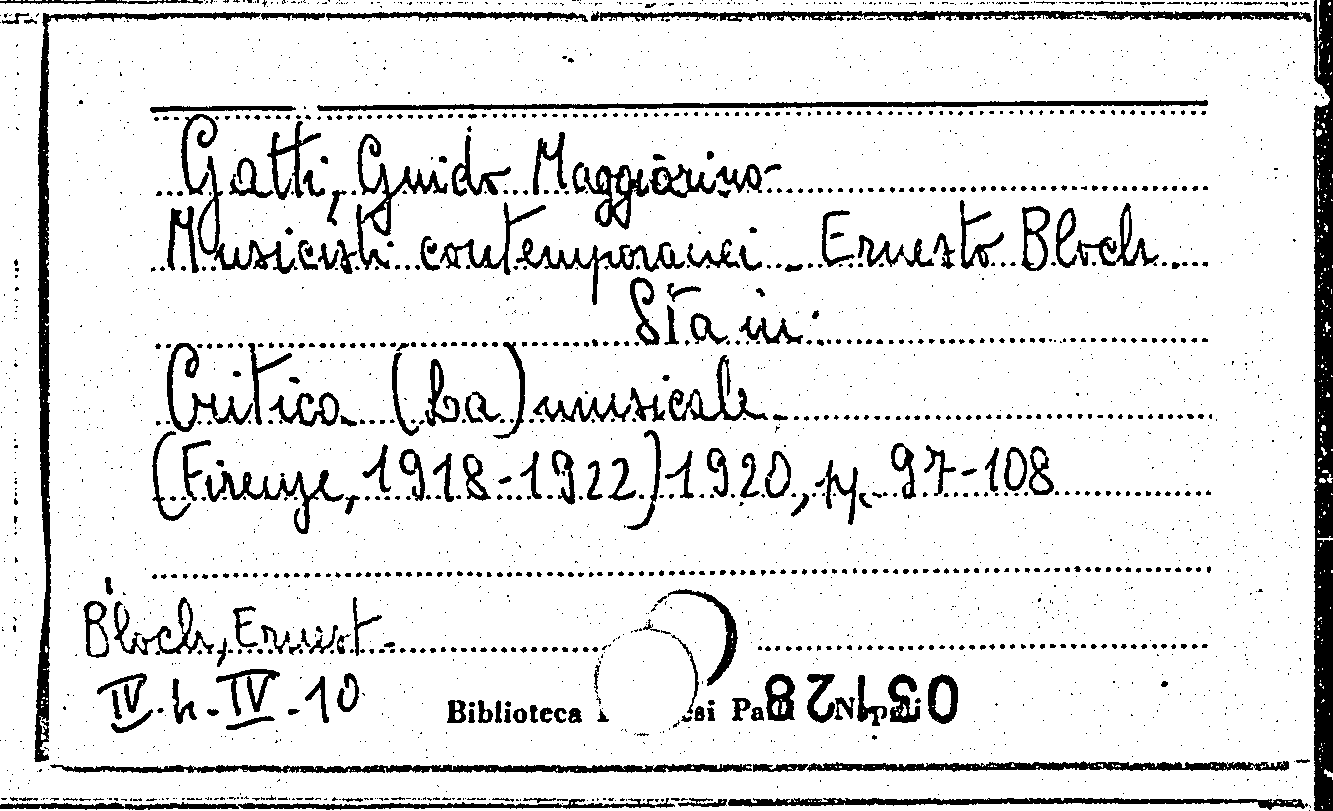 Gatti, Guido Maggiorino
Musicisti contemporanei - Ernesto Bloch.
Sta in:
Critica (La) musicale.
(Firenze, 1918-1922) 1920, pp. 97-108
Bloch, Ernest -
IV. h. IV - 10
Biblioteca